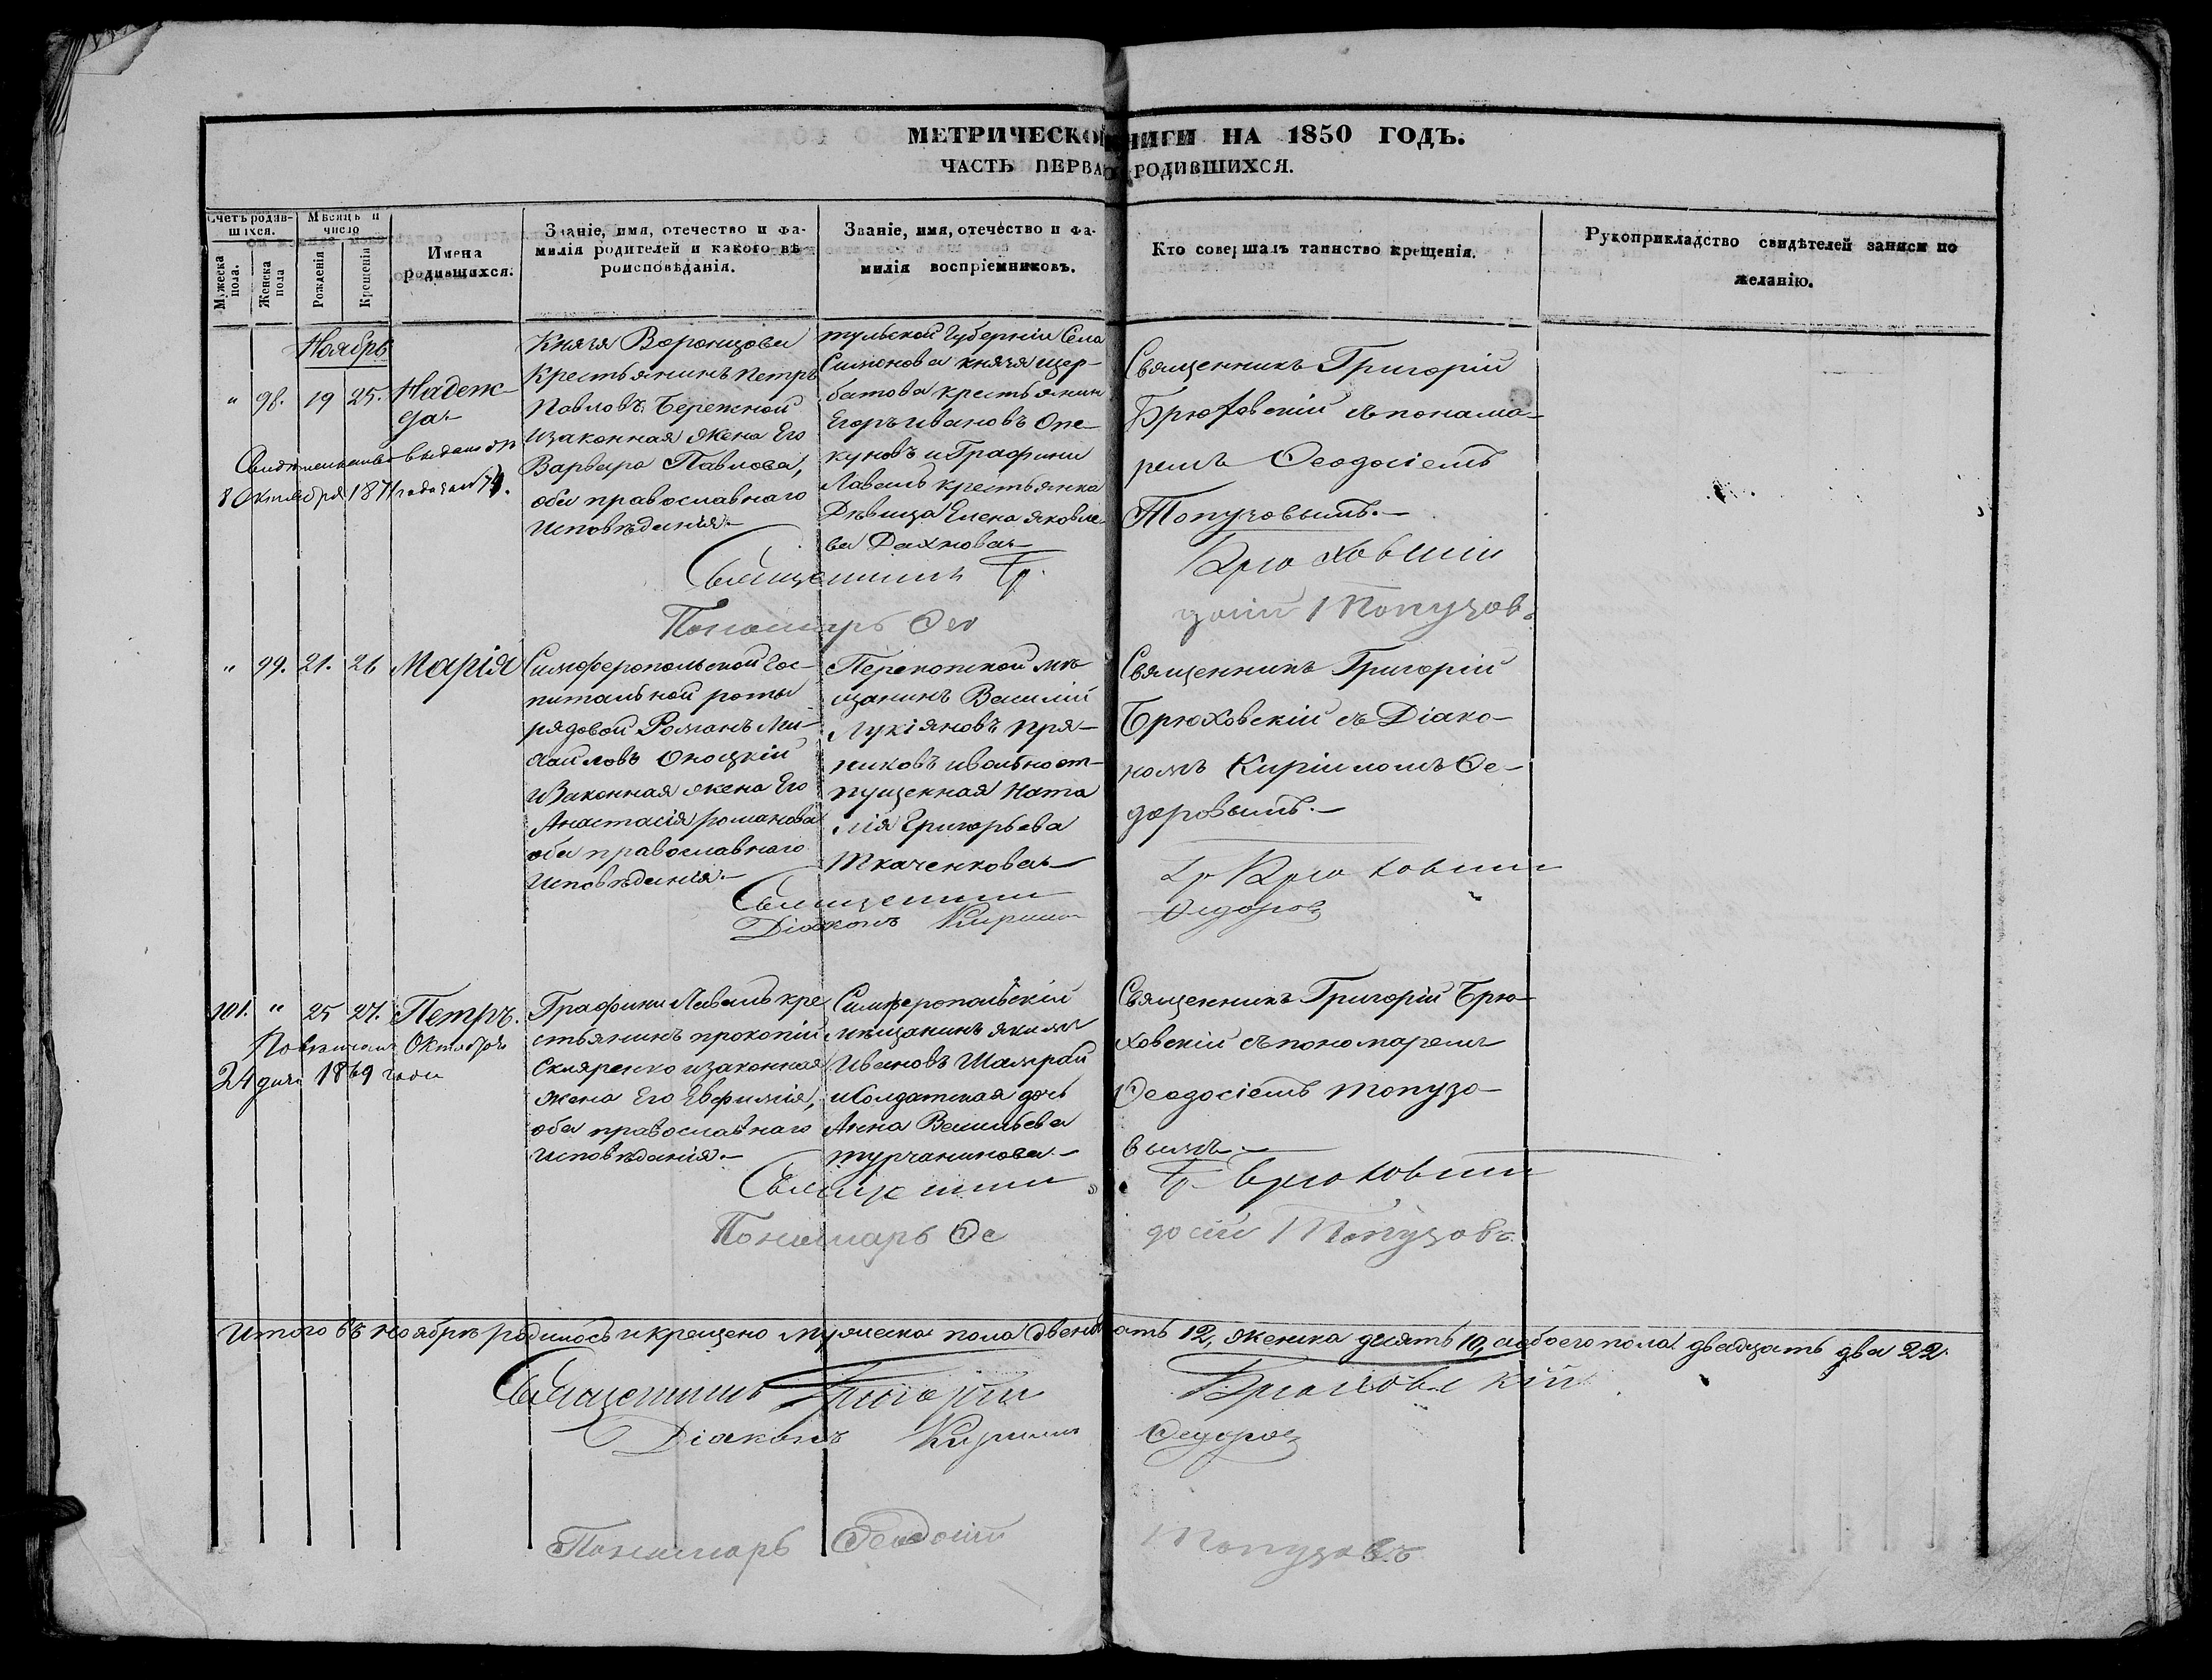 МЕТРИЧЕСКОЙ КНИГИ НА 1850 ГОДЪ.
ЧАСТЬ ПЕРВАЯ РОДИВШИХСЯ.
Счетъ родив-
шихся.
Мужеска пола.
Женска пола
Мѣсяцъ и
число
Рожденія
Крещенія
Имена
родившихся.
Званіе, имя, отечество и фа-
милія родителей и какого вѣ-
роисповѣданія.
Званіе, имя, отечество и фа-
милія воспріемниковъ.
Кто совершалъ таинство крещенія.
Рукоприкладство свидѣтелей записи по
желанію.
Ноябрь
" 98. 19 25. Надеж-
да
Свидетельство выдано
8 Октября 1871 года за №
Князя Воронцова
Крестьянинъ Петръ
Павловъ Бережной
и законная жена Его
Варвара Павлова,
оба православнаго
исповѣданія.—
тульской Губерніи Села
Симонова князя щер-
батова крестьянин
Егоръ ивановъ Опе-
куновъ и Графини
Лаваль крестьянка
Дѣвица Елена яковле-
ва Дахнова
Священникъ Григорій
Брюховскій съ понама-
ремъ Ѳеодосіемъ
Топузовымъ.—
Священникъ Гр. Брюховскій
Пономарь Ѳеодосій Топузовъ
" 99. 21. 26 Марія
Симферопольской Гос-
питальной роты
рядовой Романъ Ми-
хайловъ Оноцкій
и Законная жена Его
Анастасія романова
оба православнаго
исповѣданія.—
Перекопской мѣ-
щанинъ Василій
Лукіяновъ Пря-
никовъ и вольноот-
пущенная Ната
лія Григорьева
Ткаченкова
Священникъ Григорій
Брюховскій съ Діако-
номъ Кирилломъ Ѳе-
доровымъ.—
Священникъ Гр Брюховскій
Діаконъ Кириллъ Ѳедоровъ
101. " 25 27. Петръ.
Октября
24 дня 1869 года
Графини Лаваль кре
стьянинъ прокопій
Скляренко и законная
жена Его Евфимія,
оба православнаго
исповѣданія.—
Симферопольскій
мѣщанинъ якимъ
Ивановъ Шамрай
и Солдатская дочь
Анна Васильева
турчанинова.—
Священникъ Григорій Брю-
ховскій съ пономаремъ
Ѳеодосіемъ топузо-
вымъ.—
Священникъ Гр. Брюховскій
Пономарь Ѳеодосій Топузовъ.
Итого въ ноябрѣ родилось и крещено мужеска пола двенадцать 12, женска десять 10, а обоего пола двадцать два 22.
Священникъ Григорій Брюховскій
Діаконъ Кириллъ Ѳедоровъ
Пономарь Ѳеодосій Топузовъ